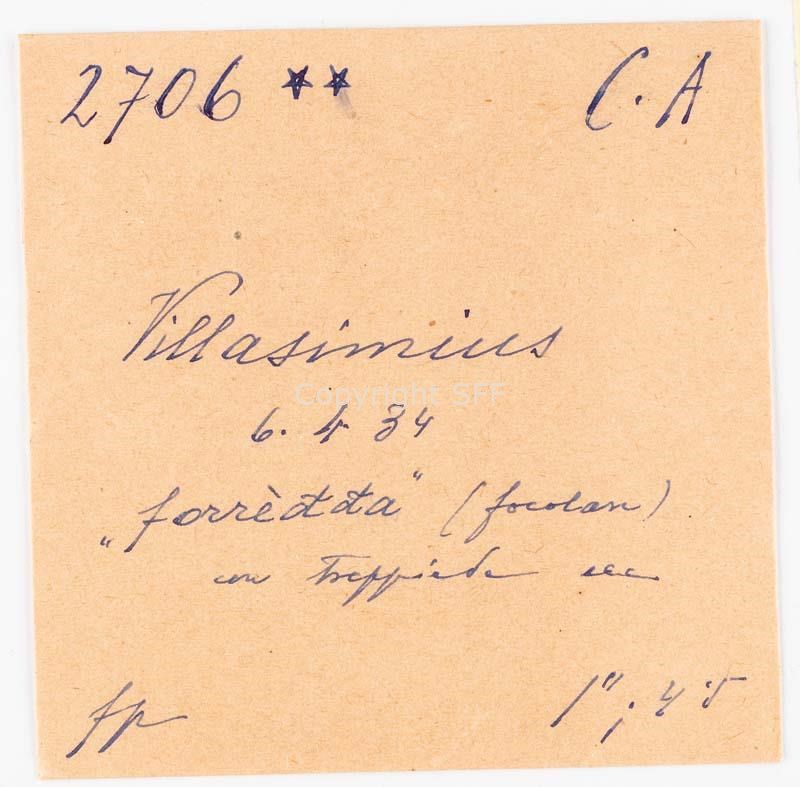 2706 ** C. A
Villasimius
Copyright SFF
6. 4 34
„forrèđđa" (focolare)
con treppiede ecc
fp 1"; 4·5